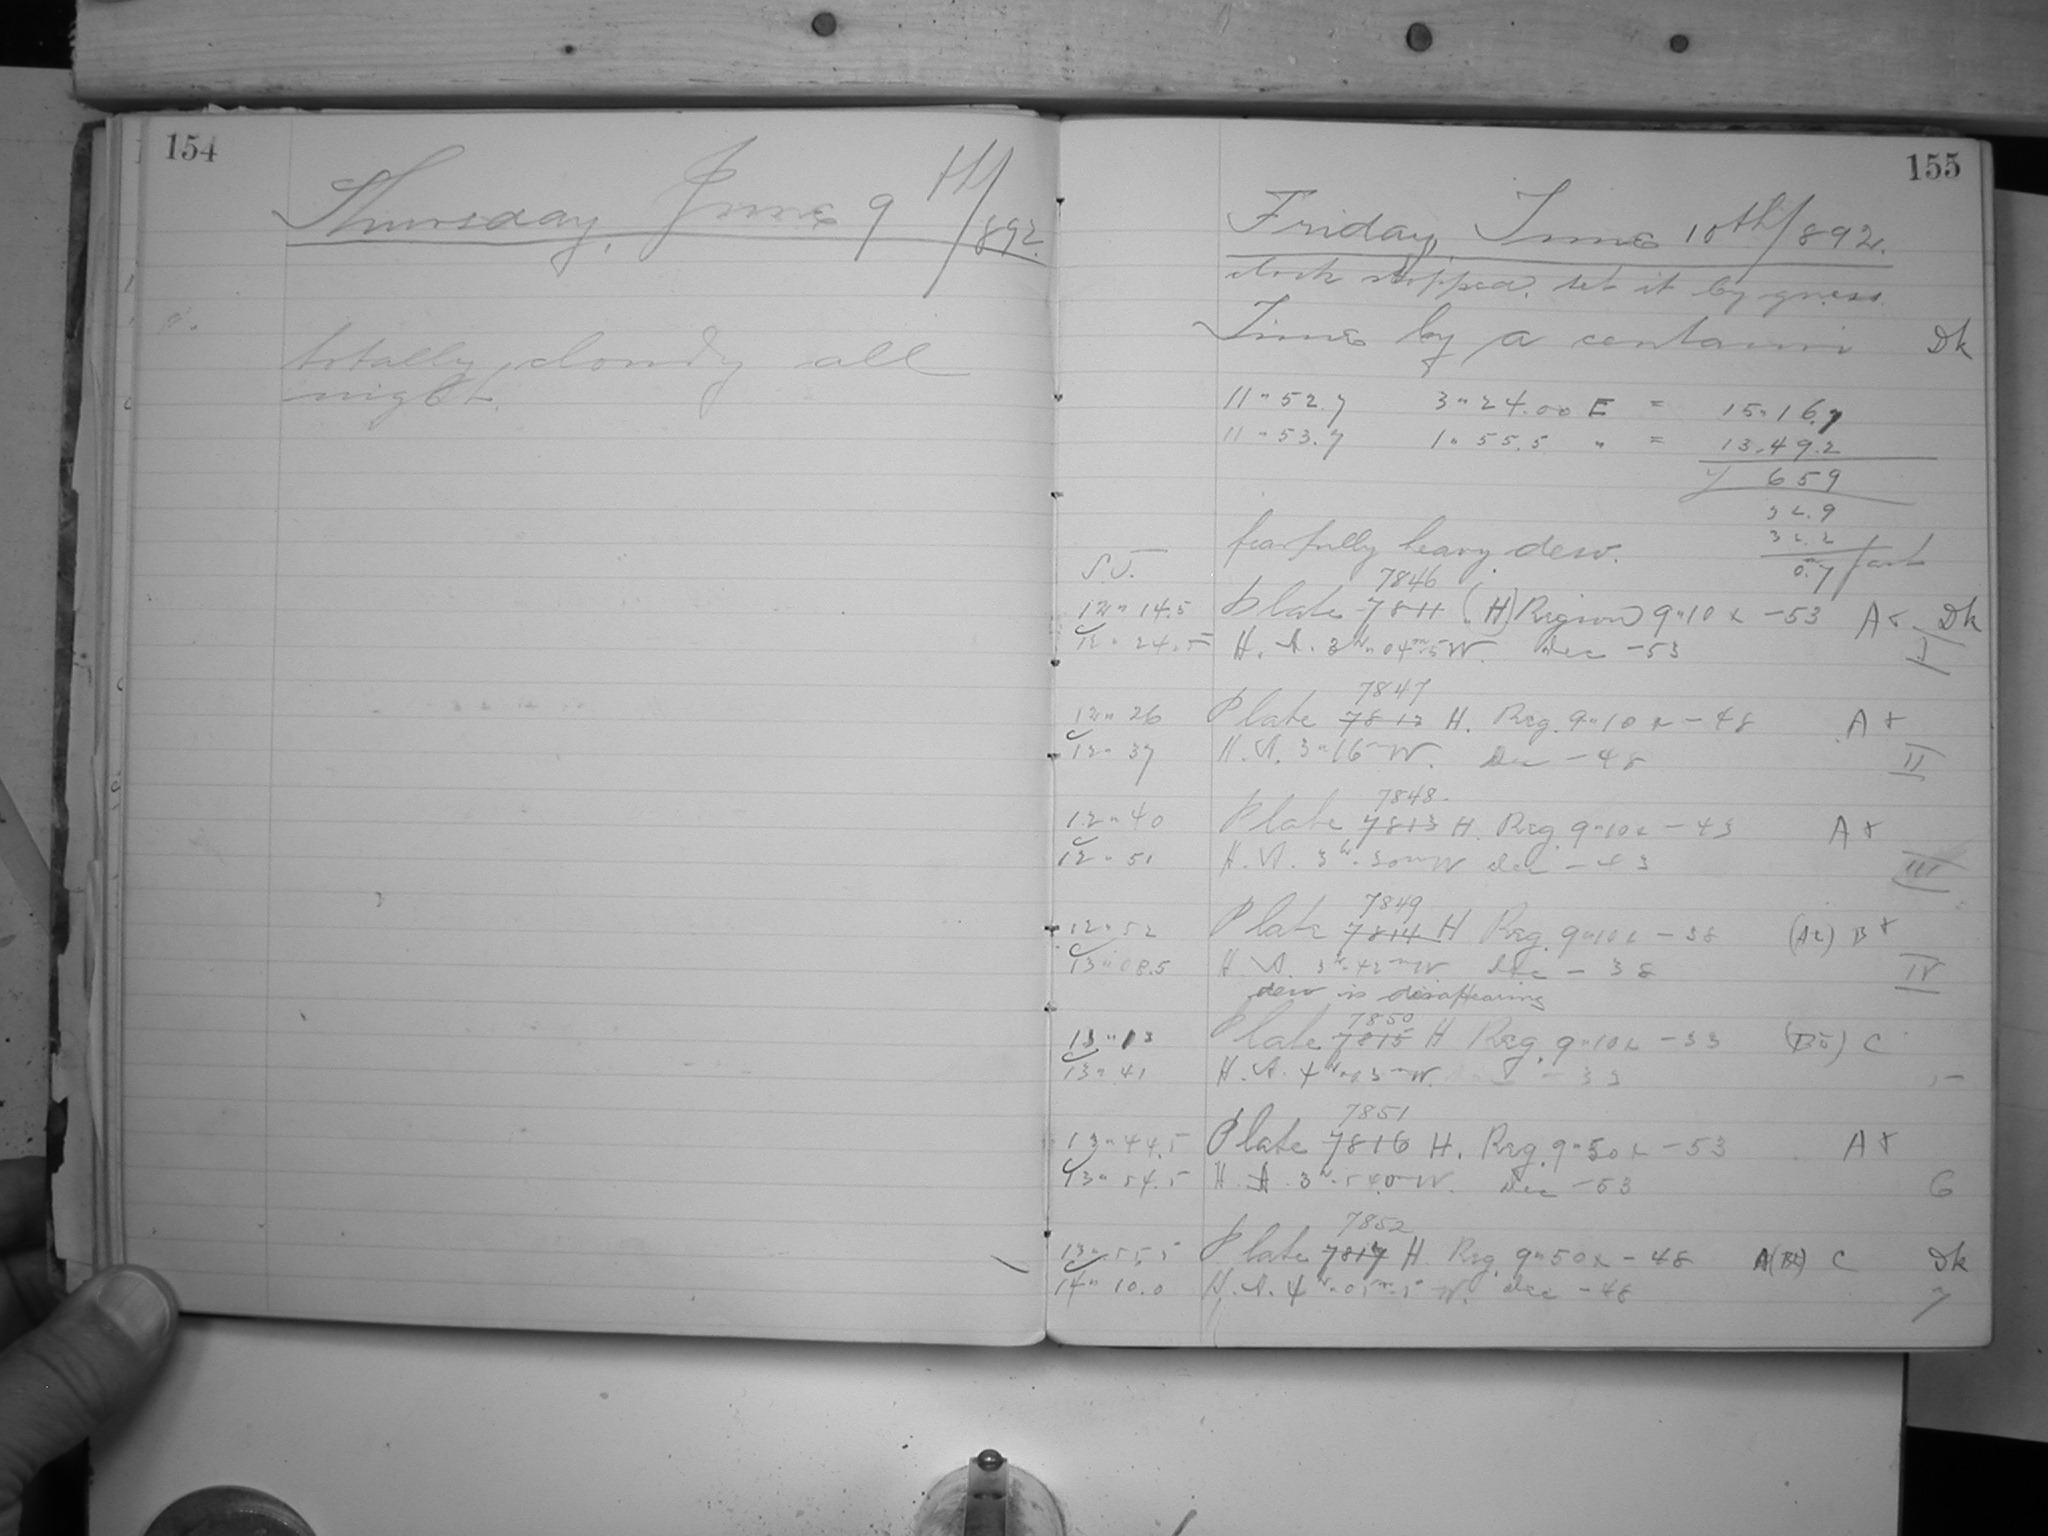 154
Thursday, June 9th/892.
totally cloudy all
night.
155
Friday, June 10th/892.
clock stopped. set it by guess.
Time by α centauri Dk
11" 52.7 3" 24.00 E = 15" 16.7
11" 53.7 1" 55.5 " = 13.49.2
7 659
32.9
32.2
fearfully heavy dew. 0.m7 fast
S.T.
7846
12" 14.5 Plate 7811 (H) Region 9"10 x -53 A Dk
12" 24.5 H. A. 3h" 04m.5 W. Dec -53 I
7847
12" 26 Plate 7812 H. Reg. 9"10 x -48 A
12" 37 H. A. 3"16m W. Dec -48 II
7848
12" 40 Plate 7813 H. Reg. 9"10 x -43 A
12" 51 H. A. 3h" 30m W Dec -43 III
7849
12" 52 Plate 7814 H Reg. 9"10 x -38 B
13" 08.5 H. A. 3h"42m W Dec -38 IV
dew is disappearing
7850
13" 13 Plate 7815 H Reg. 9"10 x -33 C
13" 41 H. A. 4h"03m W. -33
7851
13" 44.5 Plate 7816 H. Reg. 9"50 x -53 A
13" 54.5 H. A. 3h"54.0m W. Dec -53 6
7852
13" 55.5 Plate 7817 H Reg. 9"50 x -48 C Dk
14" 10.0 H. A. 4h"05m.5 W. Dec -48 7